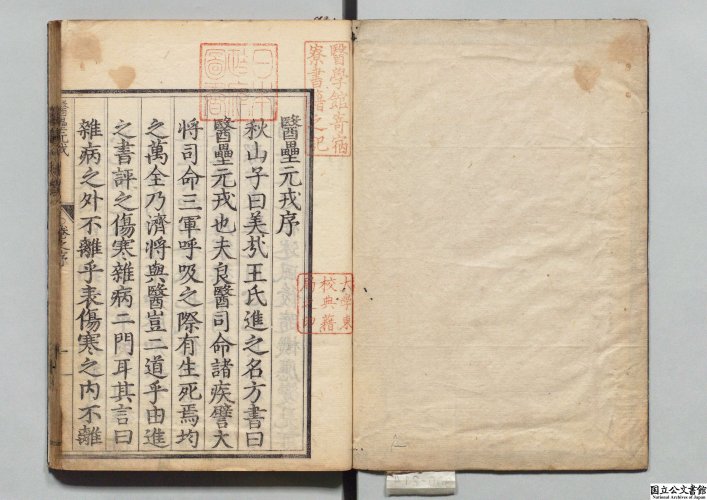 醫壘元戎序
秋山子曰美㢤王氏進之名方書曰
醫壘元戎也夫良醫司命諸疾譬大
將司命三軍呼吸之際有生死焉均
之萬全乃濟將與醫豈二道乎由進
之書評之傷寒雜病二門耳其言曰
雜病之外不離乎表傷寒之内不離
醫學館寄宿
寮書籍之記
大學東
校典籍
局之印
日本
政府
圖書
国立公文書館
National Archives of Japan